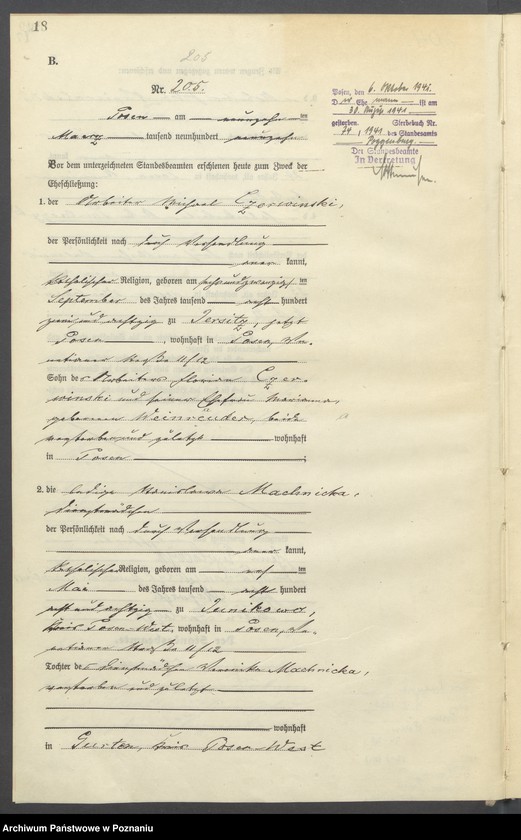 18
205
B.
Nr. 205.
Posen, den 6. Oktober 1941.
D Ehe ist am
30. August 1941
gestorben. Sterbebuch Nr.
74, 1941 des Standesamts
Roggenburg.
Der Standesbeamte
In Vertretung
Posen am neunzehn ten
Maerz tausend neunhundert neunzehn
Vor dem unterzeichneten Standesbeamten erschienen heute zum Zweck der
Eheschließung:
1. der Arbeiter Michael Czerwinski,
der Persönlichkeit nach durch Verhandlung
aner kannt,
katholischer Religion, geboren am sechsundzwanzigsten
September des Jahres tausend acht hundert
zweiundachtzig zu Jersitz, jetzt
Posen, wohnhaft in Posen,
straße 11/12
Sohn des Arbeiters Florian Czer-
winski und seiner Ehefrau Marianna,
geborenen Weinröuder, beide
verstorben und zuletzt wohnhaft
in Posen;
2. die ledige Stanislawa Machnicka,
Dienstmädchen
der Persönlichkeit nach durch Verhandlung
aner kannt,
katholischer Religion, geboren am ten
Mai des Jahres tausend acht hundert
acht und achtzig zu Junikowo,
Kreis Posen West, wohnhaft in Posen,
straße 11/12
Tochter des Dienstmädchen Veronika Machnicka,
verstorben und zuletzt
wohnhaft
in Gurten, Kreis Posen-West
Archiwum Państwowe w Poznaniu